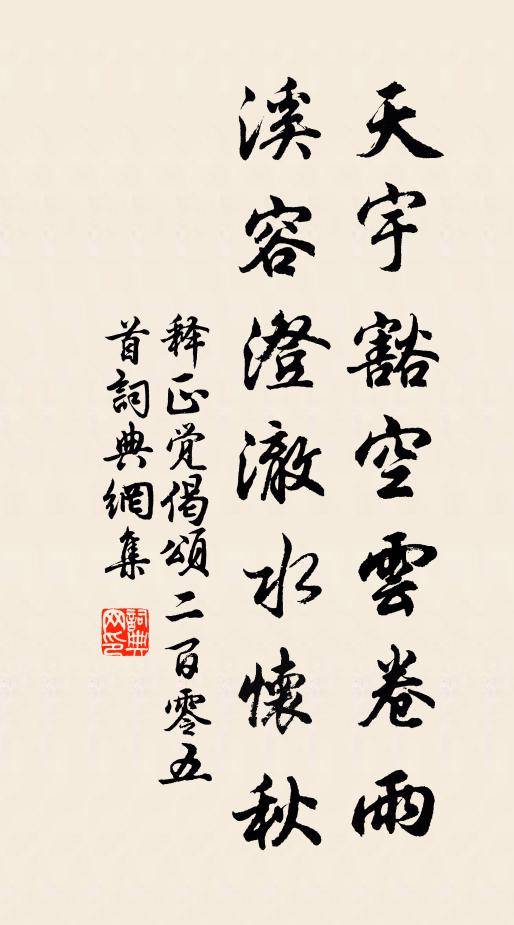 天宇豁空雲卷雨
溪容澄澈水懷秋
释正觉偈頌二百零五
首詞典網集
詞典网印